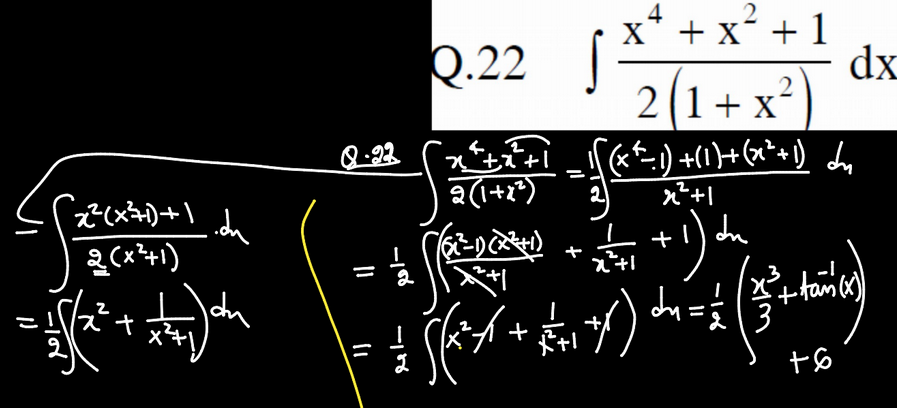 Q.22 ∫ (x⁴ + x² + 1) / (2(1 + x²)) dx
Q.22 ∫ (x⁴ + x² + 1) / (2(1+x²)) = 1/2 ∫ ((x⁴ - 1) + (1) + (x² + 1)) / (x² + 1) dx
= 1/2 ∫ ( (x²-1)(x²+1) / (x²+1) + 1/(x²+1) + 1 ) dx
= 1/2 ∫ ( x² - 1 + 1/(x²+1) + 1 ) dx = 1/2 ( x³/3 + tan⁻¹(x) ) + C
= ∫ (x²(x²+1) + 1) / (2(x²+1)) . dx
= 1/2 ∫ ( x² + 1/(x²+1) ) dx